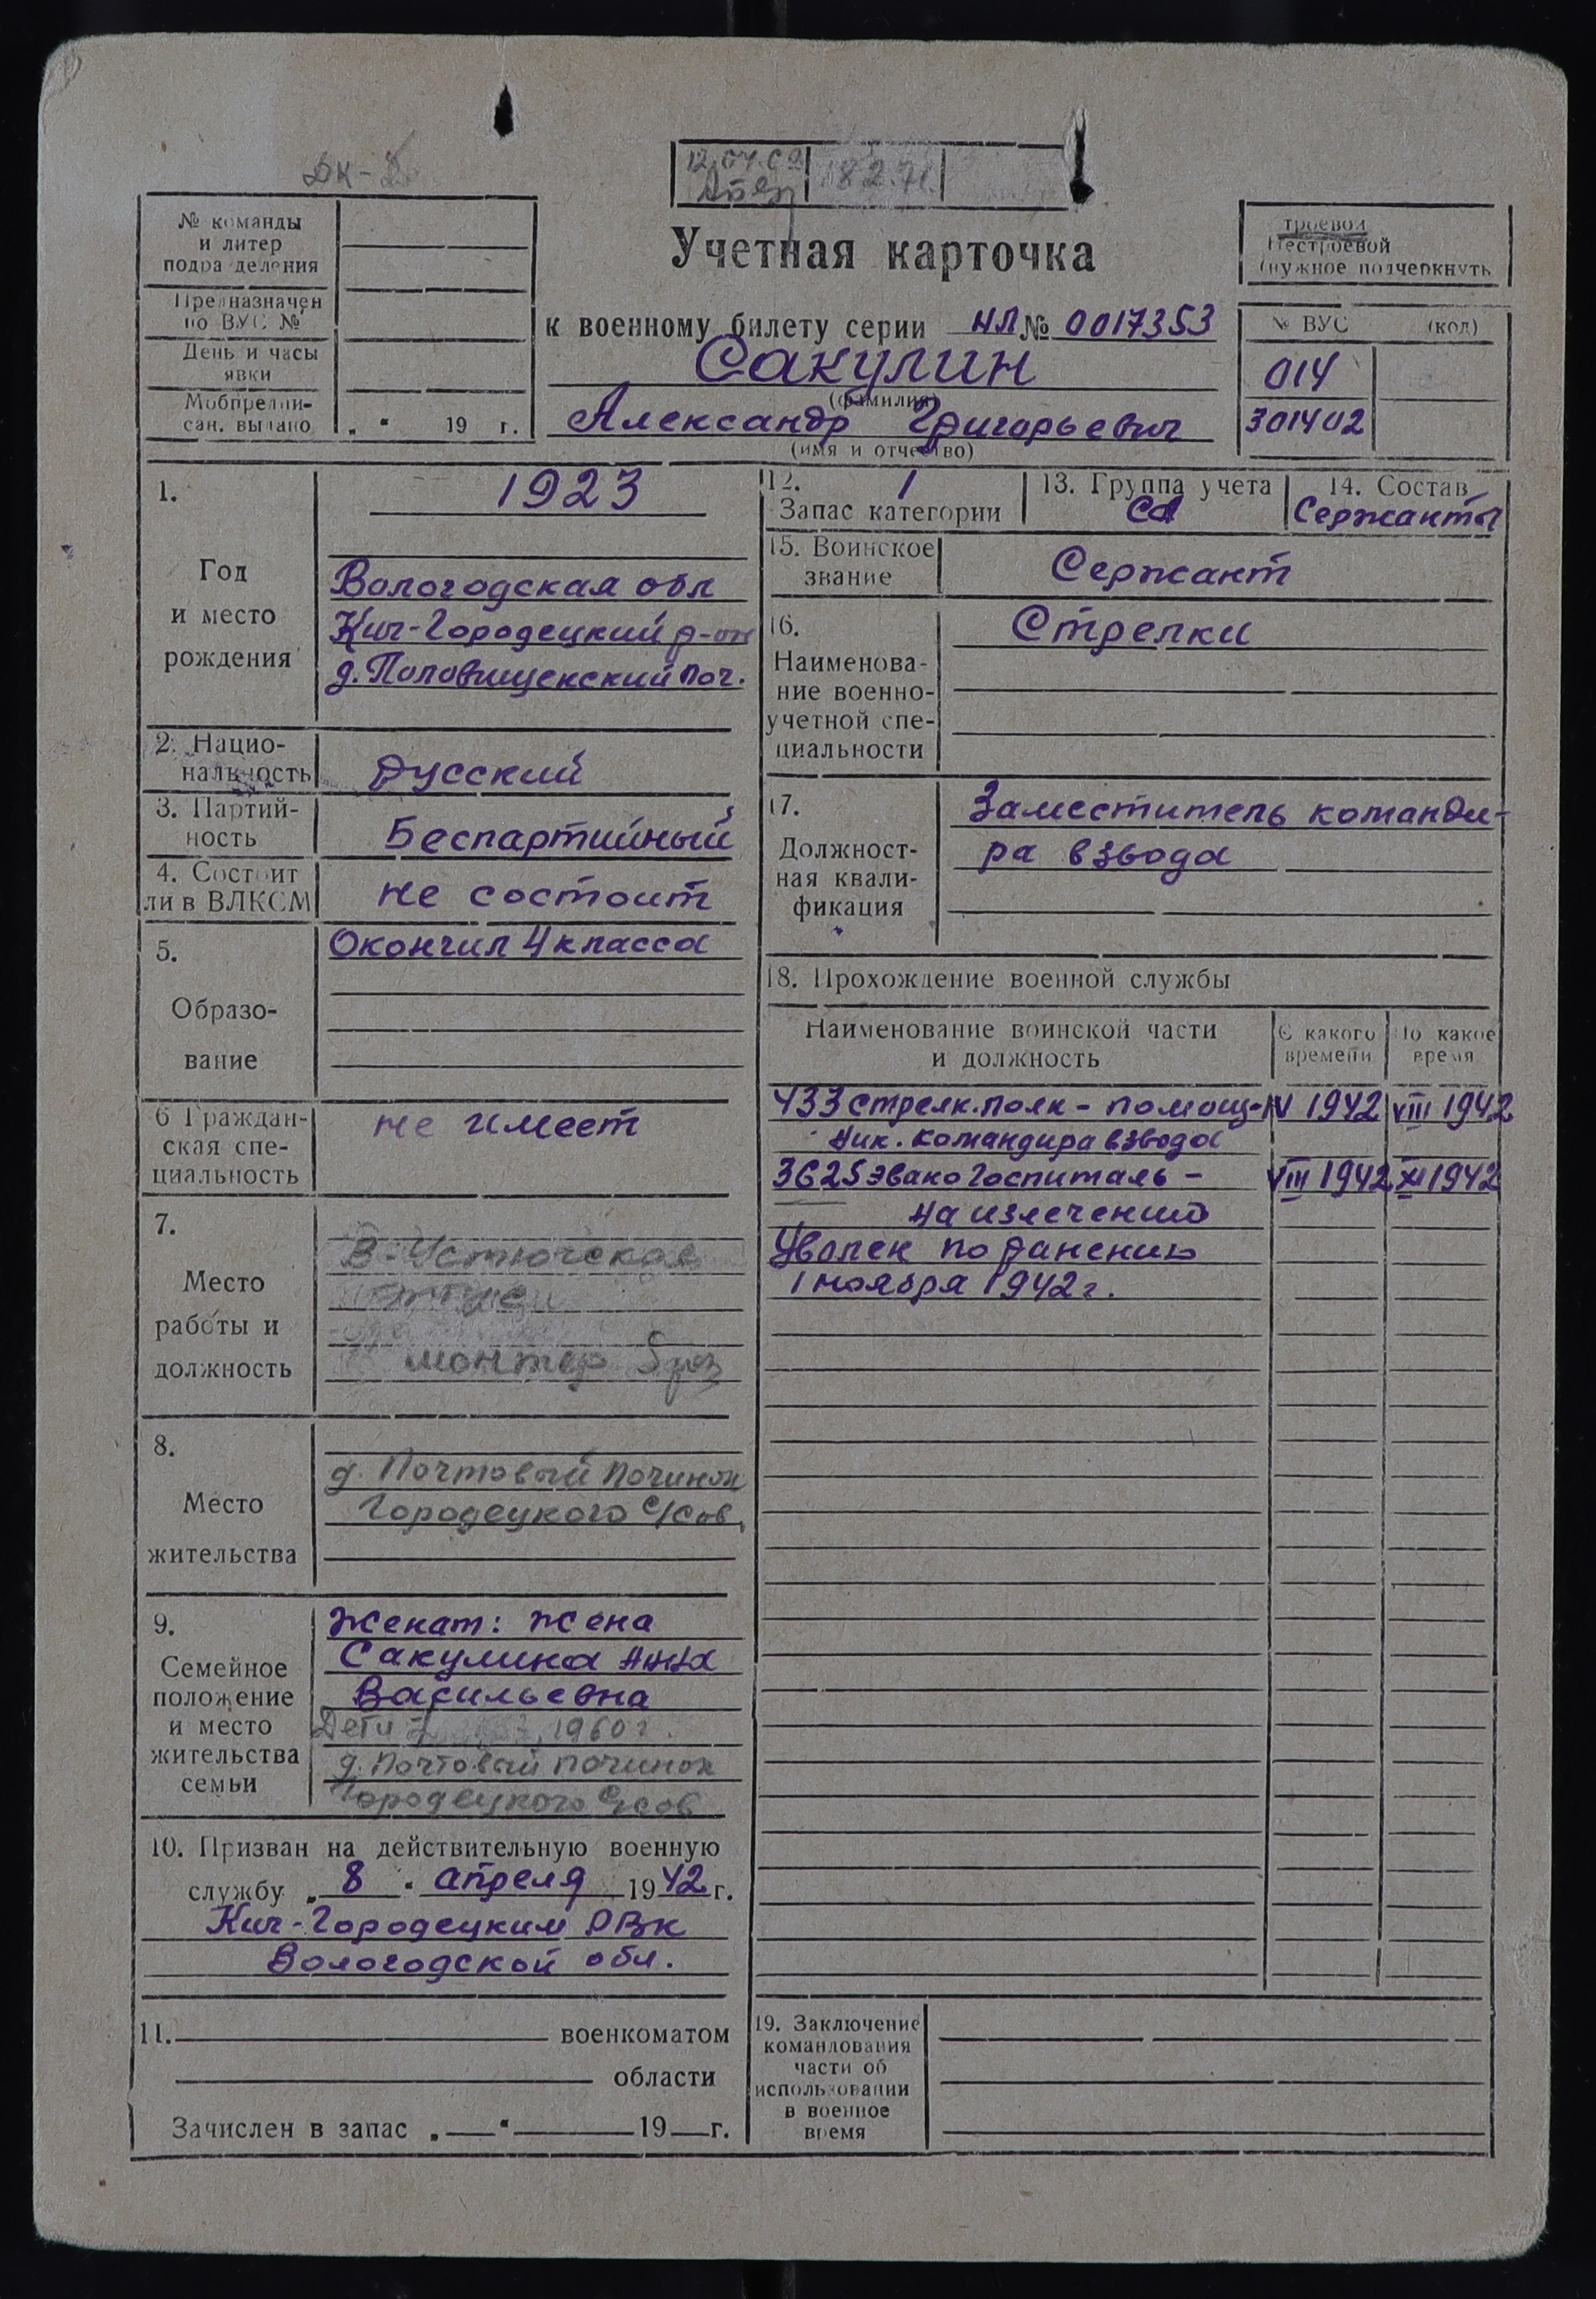 ДК-
12.04.69
18.2.71.
№ команды
и литер
подразделения
Предназначен
по ВУС №
День и часы
явки
Мобпредпи-
сан. выдано „ “ 19 г.
Учетная карточка
к военному билету серии НЛ № 0017353
Сакулин
(фамилия)
Александр Григорьевич
(имя и отчество)
троевой
Нестроевой
(нужное подчеркнуть
№ ВУС (код)
014
301402
1.
Год
и место
рождения
1923
Вологодская обл
Кич-Городецкий р-он
д. Половищенский поч.
2. Нацио-
нальность
Русский
3. Партий-
ность
Беспартийный
4. Состоит
ли в ВЛКСМ
не состоит
5.
Образо-
вание
Окончил 4 класса
6 Граждан-
ская спе-
циальность
не имеет
7.
Место
работы и
должность
В-Устюгская
монтер 5 раз
8.
Место
жительства
д. Почтовый починок
Городецкого с/сов.
9.
Семейное
положение
и место
жительства
семьи
Женат: жена
Сакулина Анна
Васильевна
Дети 1960 г.
д. Почтовый починок
Городецкого с/сов
10. Призван на действительную военную
службу „ 8 “ апреля 1942 г.
Кич-Городецким РВК
Вологодской обл.
11. военкоматом
области
Зачислен в запас „ “ 19 г.
12. 1
Запас категории
13. Группа учета
СА
14. Состав
Сержанты
15. Воинское
звание
Сержант
16.
Наименова-
ние военно-
учетной спе-
циальности
Стрелки
17.
Должност-
ная квали-
фикация
Заместитель команди-
ра взвода
18. Прохождение военной службы
Наименование воинской части
и должность
С какого
времени
По какое
время
433 стрелк. полк - помощ- IV 1942 VIII 1942
ник. командира взвода
3625 эвакогоспиталь - VIII 1942 XI 1942
на излечении
Уволен по ранению
1 ноября 1942 г.
19. Заключение
командования
части об
использовании
в военное
время